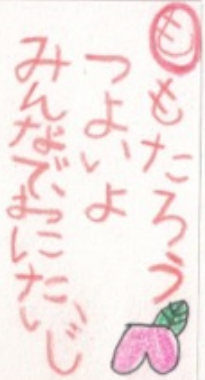 ももたろう
つよいよ
みんなでおにたいじ